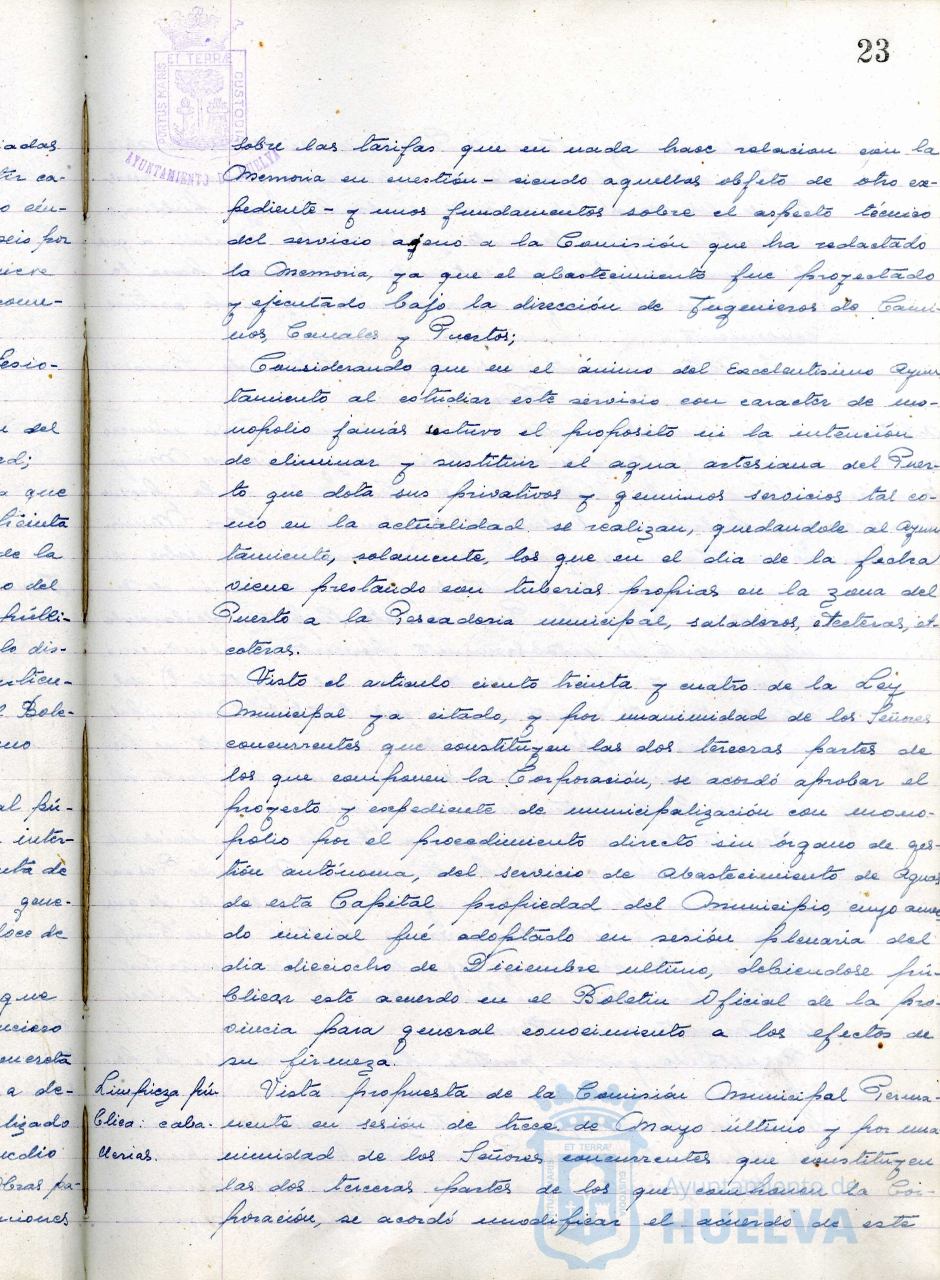 23
PORTUS MARIS
ET TERRÆ
CUSTODIA
AYUNTAMIENTO DE HUELVA
sobre las tarifas que en nada hace relacion con la
Memoria en cuestión - siendo aquellas objeto de otro ex-
pediente - y unos fundamentos sobre el aspecto técnico
del servicio ageno a la Comisión que ha redactado
la Memoria, ya que el abastecimiento fue proyectado
y ejecutado bajo la dirección de Ingenieros de Cami-
nos, Canales y Puertos;
Considerando que en el ánimo del Excelentisimo Ayun
tamiento al estudiar este servicio con caracter de mo-
nopolio jamás estuvo el proposito ni la intención
de eliminar y sustituir el agua artesiana del Puer-
to que dota sus privativos y genuinos servicios tal co-
mo en la actualidad se realizan, quedandole al Ayun
tamiento, solamente, los que en el dia de la fecha
viene prestando con tuberias propias en la zona del
Puerto a la Pescaderia municipal, saladeros, etceteras, et-
ceteras.
Visto el articulo ciento treinta y cuatro de la Ley
Municipal ya citado, y por unanimidad de los Señores
concurrentes que constituyen las dos terceras partes de
los que componen la Corporación, se acordó aprobar el
proyecto y expediente de municipalización con mono-
polio por el procedimiento directo sin órgano de ges-
tión autónoma, del servicio de Abastecimiento de Aguas
de esta Capital propiedad del Municipio, cuyo acuer
do inicial fué adoptado en sesión plenaria del
dia dieciocho de Diciembre ultimo, debiendose pú-
blicar este acuerdo en el Boletin Oficial de la pro-
vincia para general conocimiento a los efectos de
su firmeza.
Limpieza pú-
blica: caba-
llerias.
Vista propuesta de la Comisión Municipal Perma-
nente en sesión de trece de Mayo último y por una
nimidad de los Señores concurrentes que constituyen
las dos terceras partes de los que componen la Cor-
poración, se acordó modificar el acuerdo de este
Ayuntamiento de
HUELVA